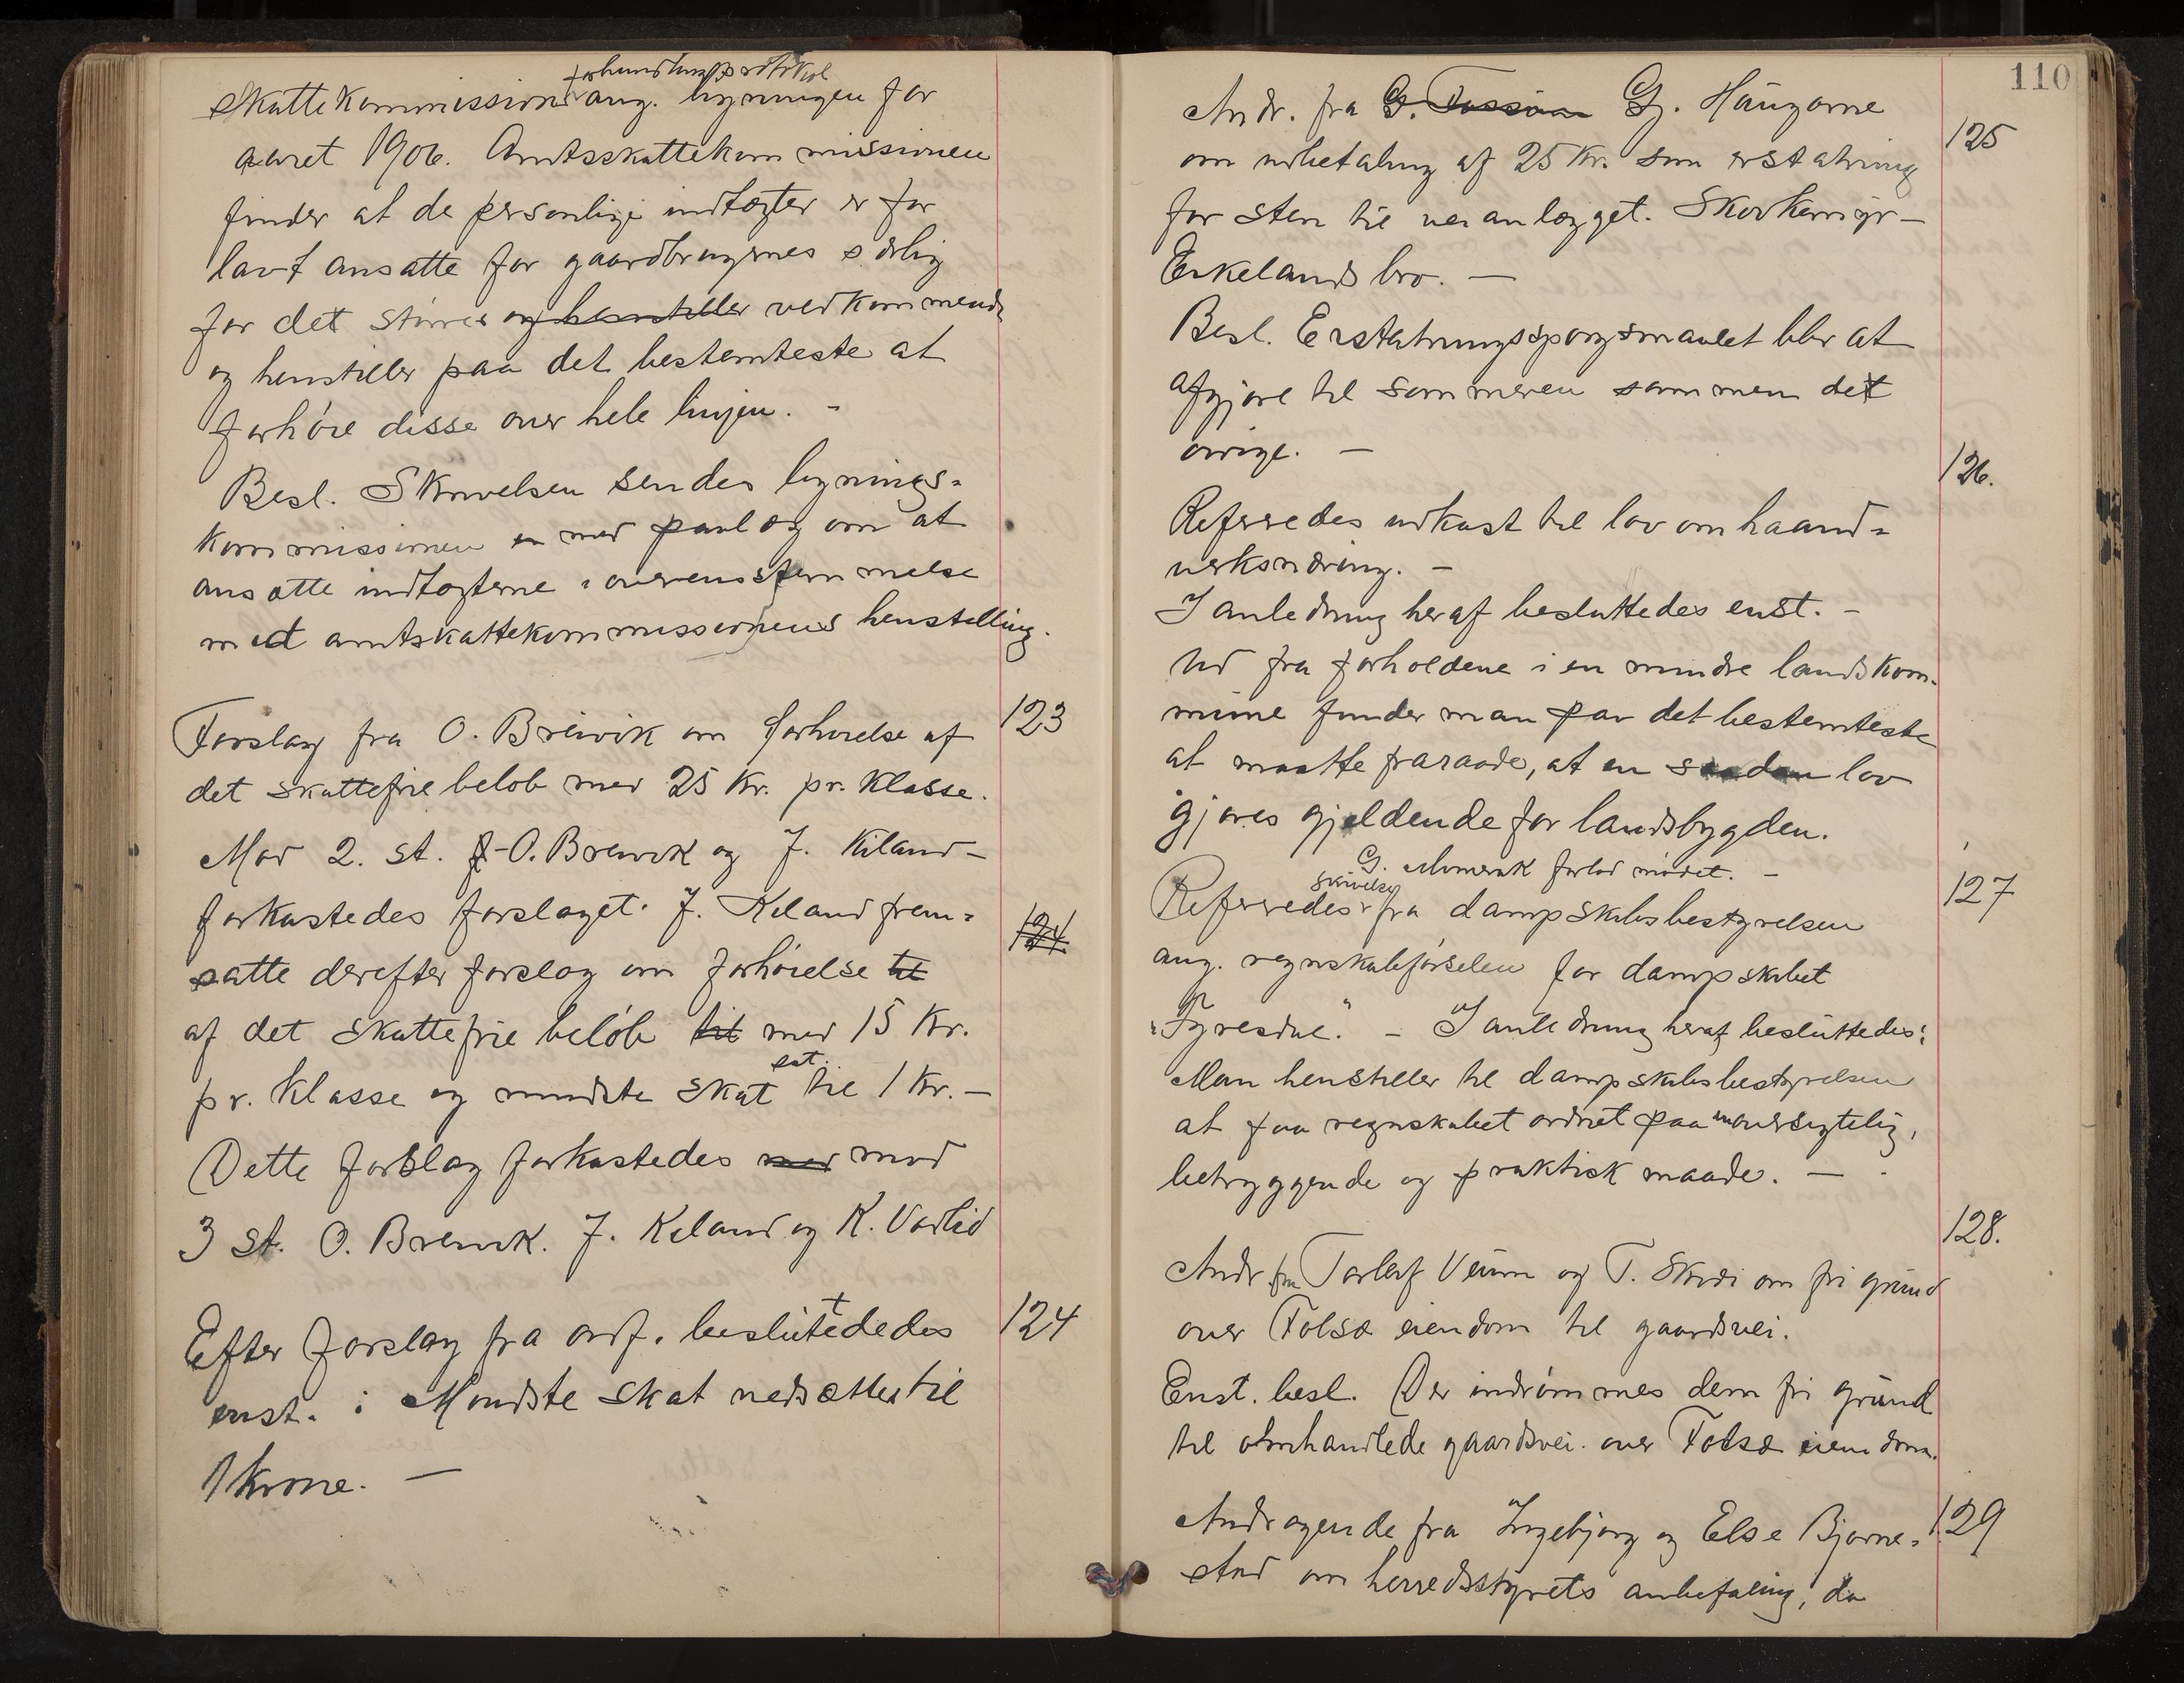 forhandlingsprotokol
Skattekommissions ang. ligningen for
aaret 1906. Amtsskattekommissionen
finder at de personlige indtægter er for
lavt ansatte for gaardbrugernes særlig
for det større og henstiller vedkommende
og henstiller paa det bestemteste at
forhöie disse over hele linjen. -
Besl. Skrivelsen sendes lignings-
kommissionen en med paalæg om at
ansætte indtægterne i overensstemmelse
med amtskattekommissionens henstilling.
Forslag fra O. Breivik om forhøielse af 123
det skattefrie beløb med 25 Kr. pr. Klasse.
Mod 2. st. O. Breivik og J. Kiland -
forkastedes forslaget. J. Kiland frem-
124
satte derefter forslag om forhöielse til
af det skattefrie belöb til med 15 Kr.
pr. Klasse og mindste skat sat. til 1 Kr. -
Dette forslag forkastedes med mod
3 st. O. Breivik. J. Kiland og K. Vaslid
Efter forslag fra ordf. besluttededes 124
enst. : Mindste skat nedsættes til
1 krone. -
110
Andr. fra G. G. Haugane
om udbetaling af 25 Kr. som erstatning 125
for sten til veianlægget. -
Eikelands bro. -
Besl. Erstatningsspørgsmaalet blir at
afgjøre til sommeren sammen det
övrige. -
126.
Refereredes udkast til lov om haand-
verksnæring. -
I anledning heraf besluttedes enst. -
Ud fra forholdene i en mindre landskom-
mune finder man paa det bestemteste
at maatte fraraade, at en saadan lov
gjøres gjældende for landsbygden.
G. Momrak forlod mödet. -
Refereredes skrivelse fra dampskibsbestyrelsen 127
ang. regnskabsförselen for dampskibet
"Fyresdal". - I anledning heraf besluttedes:
Man henstiller til dampskibsbestyrelsen
at faa regnskabet ordnet paa en oversigtelig,
betryggende og praktisk maade. -
128.
Andr fra Torleif Veum og T. Skredi om fri grund
over Folsæ eiendom til gaardsvei.
Enst. besl. Der indrömmes dem fri grund
til omhandlede gaardsvei over Folsæ eiendom.
Andragende fra Ingebjørg og Else Bjørne- 129
stad om herredsstyrets anbefaling, da